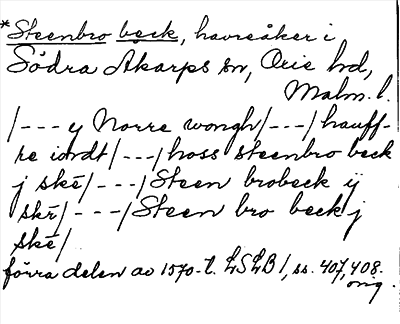 *Steenbro beck, havreåker i
Södra Åkarps sn, Oxie hd,
Malm. l.
/---y Norre wongh/---/hauff-
re iordt/---/hoss steenbro beck
j skē/---/Steen brobeck ij
skr̄/---/Steen bro beck j
skē/
förra delen av 1570-t. LSLB 1, ss. 407, 408.
orig.